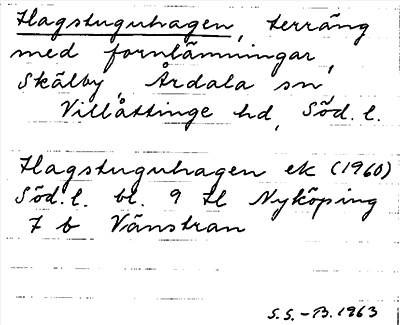 Hagstuguhagen, terräng
med fornlämningar,
Skälby, Årdala sn,
Villåttinge hd, Söd. l.
Hagstuguhagen ek (1960)
Söd. l. bl. 9 H Nyköping
7 b Vänstran
S.S.-B. 1963